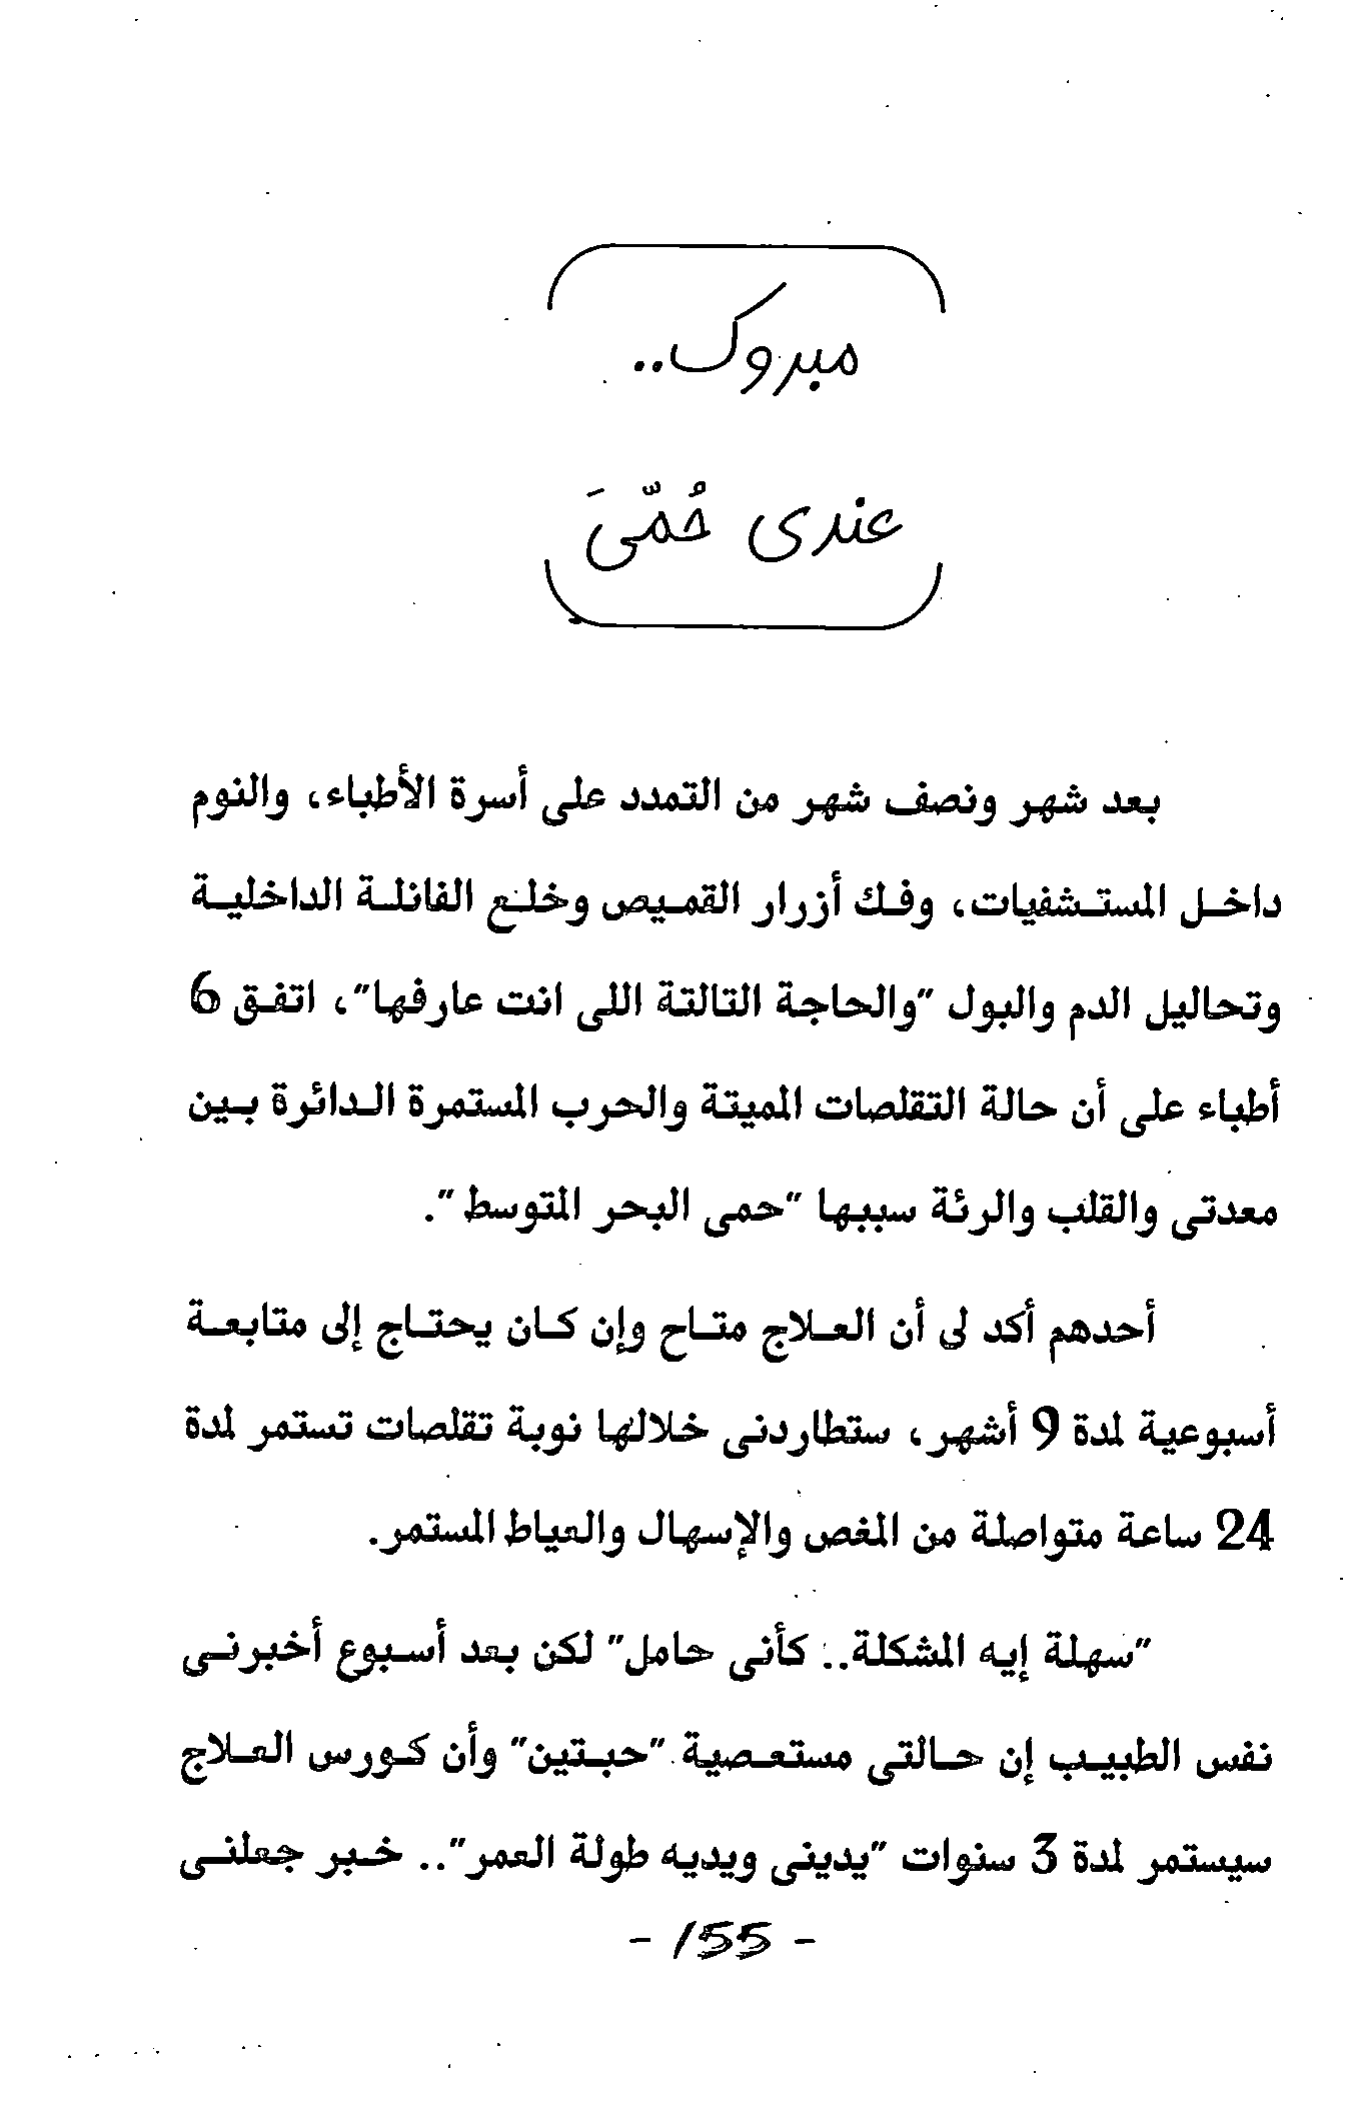 مبروك..
عندى حُمّىَ
بعد شهر ونصف شهر من التمدد على أسرة الأطباء، والنوم
داخل المستشفيات، وفك أزرار القميص وخلع الفانلة الداخلية
وتحاليل الدم والبول "والحاجة التالتة اللى انت عارفها"، اتفق 6
أطباء على أن حالة التقلصات المميتة والحرب المستمرة الدائرة بين
معدتى والقلب والرئة سببها "حمى البحر المتوسط".
أحدهم أكد لى أن العلاج متاح وإن كان يحتاج إلى متابعة
أسبوعية لمدة 9 أشهر، ستطاردنى خلالها نوبة تقلصات تستمر لمدة
24 ساعة متواصلة من المغص والإسهال والعياط المستمر.
"سهلة إيه المشكلة.. كأنى حامل" لكن بعد أسبوع أخبرنى
نفس الطبيب إن حالتى مستعصية "حبتين" وأن كورس العلاج
سيستمر لمدة 3 سنوات "يدينى ويديه طولة العمر".. خبر جعلنى
- 155 -